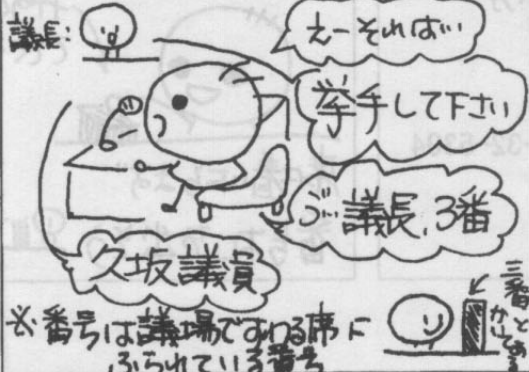 議長:
えーそれは…
挙手して下さい
議長、3番
久坂議員
※番号は議場ですわる席に
ふられている番号
三番と
かいてある